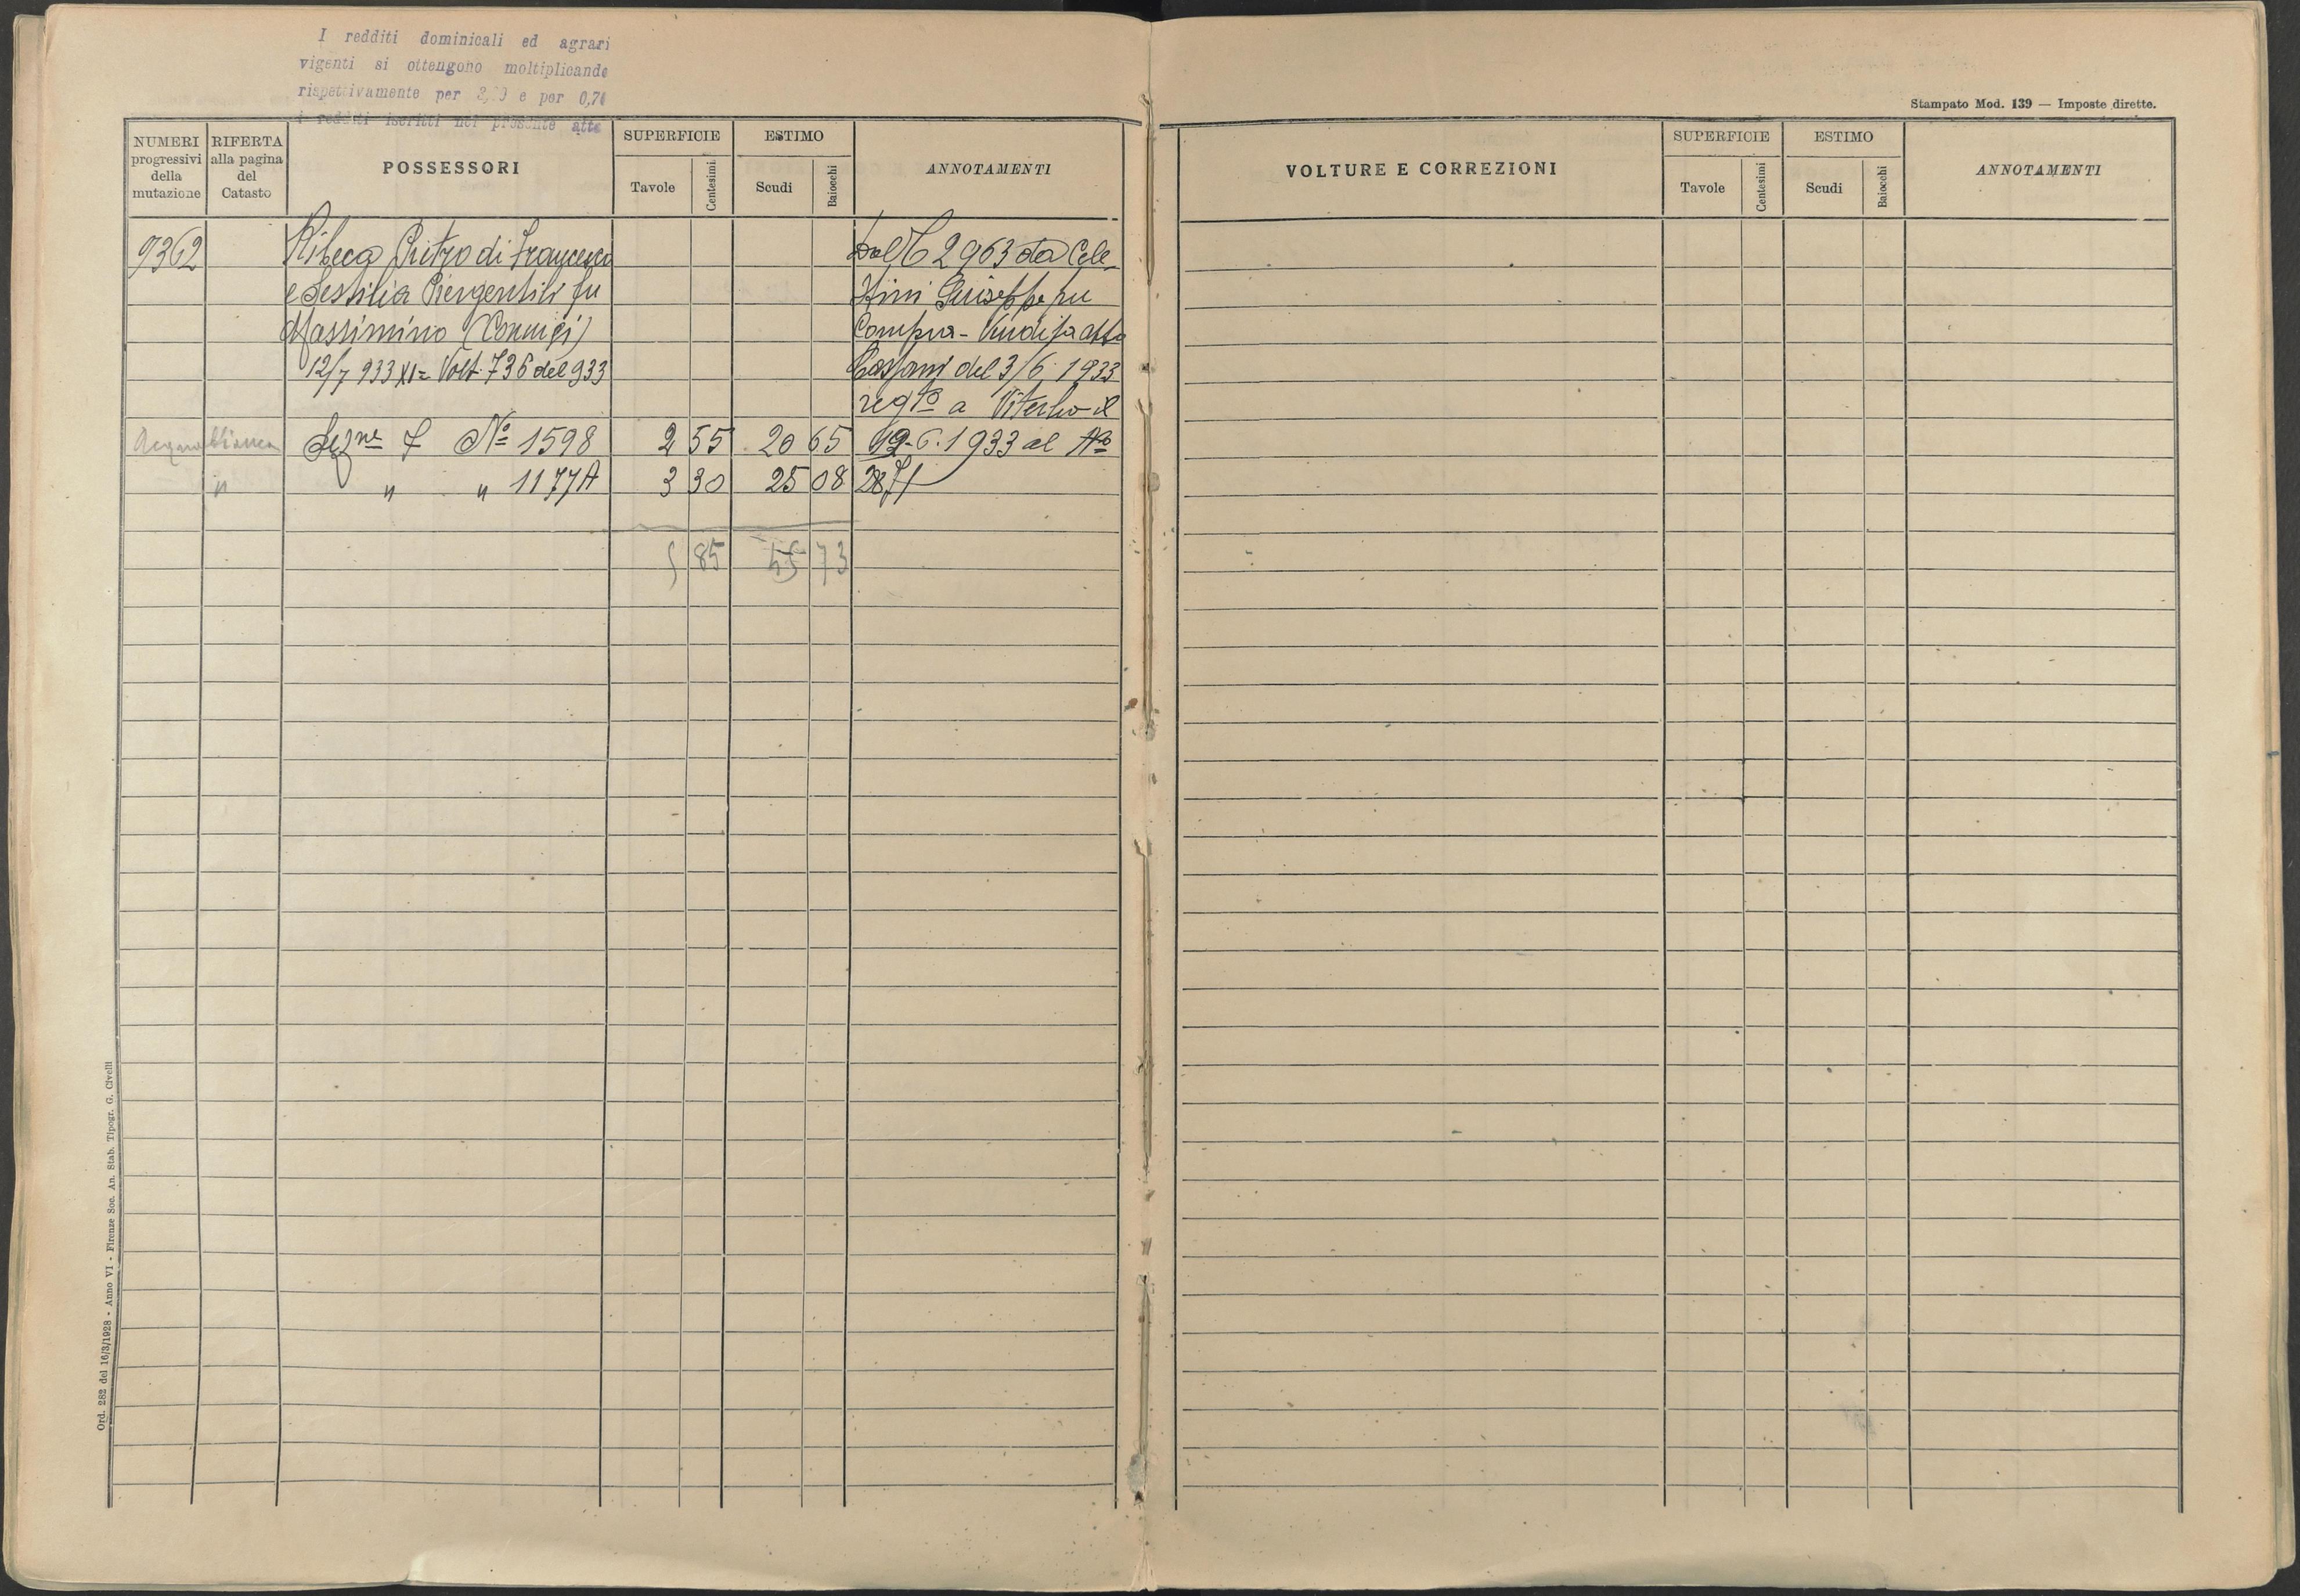 I redditi dominicali ed agrari
vigenti si ottengono moltiplicando
rispettivamente per e per 0,74
i redditi iscritti nel presente atto
Stampato Mod. 139 — Imposte dirette.
NUMERI progressivi della mutazione
RIFERTA alla pagina del Catasto
POSSESSORI
SUPERFICIE
Tavole
Centesimi
ESTIMO
Scudi
Baiocchi
ANNOTAMENTI
VOLTURE E CORREZIONI
SUPERFICIE
Tavole
Centesimi
ESTIMO
Scudi
Baiocchi
ANNOTAMENTI
9362 Ribeca Pietro di Francesco Dal C 2963 da Cele-
e Sestilia Piergentili fu stini Giuseppe per
Massimino (Coniugi) Compra-Vendita atto
12/7 933 XI= Volt. 736 del 933 del 3/6 1933
regto a Viterbo il
Acquabianca Sezne F No 1598 2 55 20 65 19-6-1933 al No
" " " 1177A 3 30 25 08
5 85 45 73
Ord. 282 del 16/3/1928 - Anno VI - Firenze Soc. An. Stab. Tipogr. G. Civelli